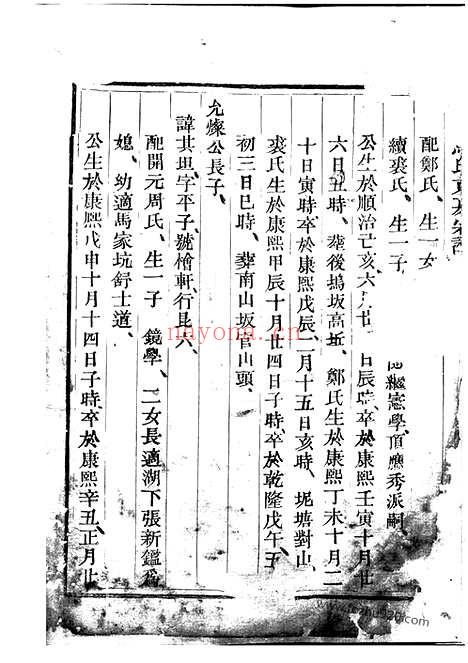 配鄭氏、生一女
續裘氏、生一子 繼憲學頂應秀派嗣
公生於順治己亥六月廿 日辰時、卒於康熙壬寅十月廿
六日丑時、葬後塢坂高坵、鄭氏生於康熙丁未十月二
十日寅時卒於康熙戊辰二月十五日亥時、坭墳對山、
裘氏生於康熙甲辰十月廿四日子時、卒於乾隆戊午五
初三日巳時、葬南山坂官山頭、
允燦公長子、
諱其坦、字平子、號檜軒行昆六、
配開元周氏、生一子 鏡學、二女長適湖下張新鑑爲
媳、幼適馬家坑舒士道、
公生於康熙戊申十月十四日子時、卒於康熙辛丑正月廿
nayona.cn